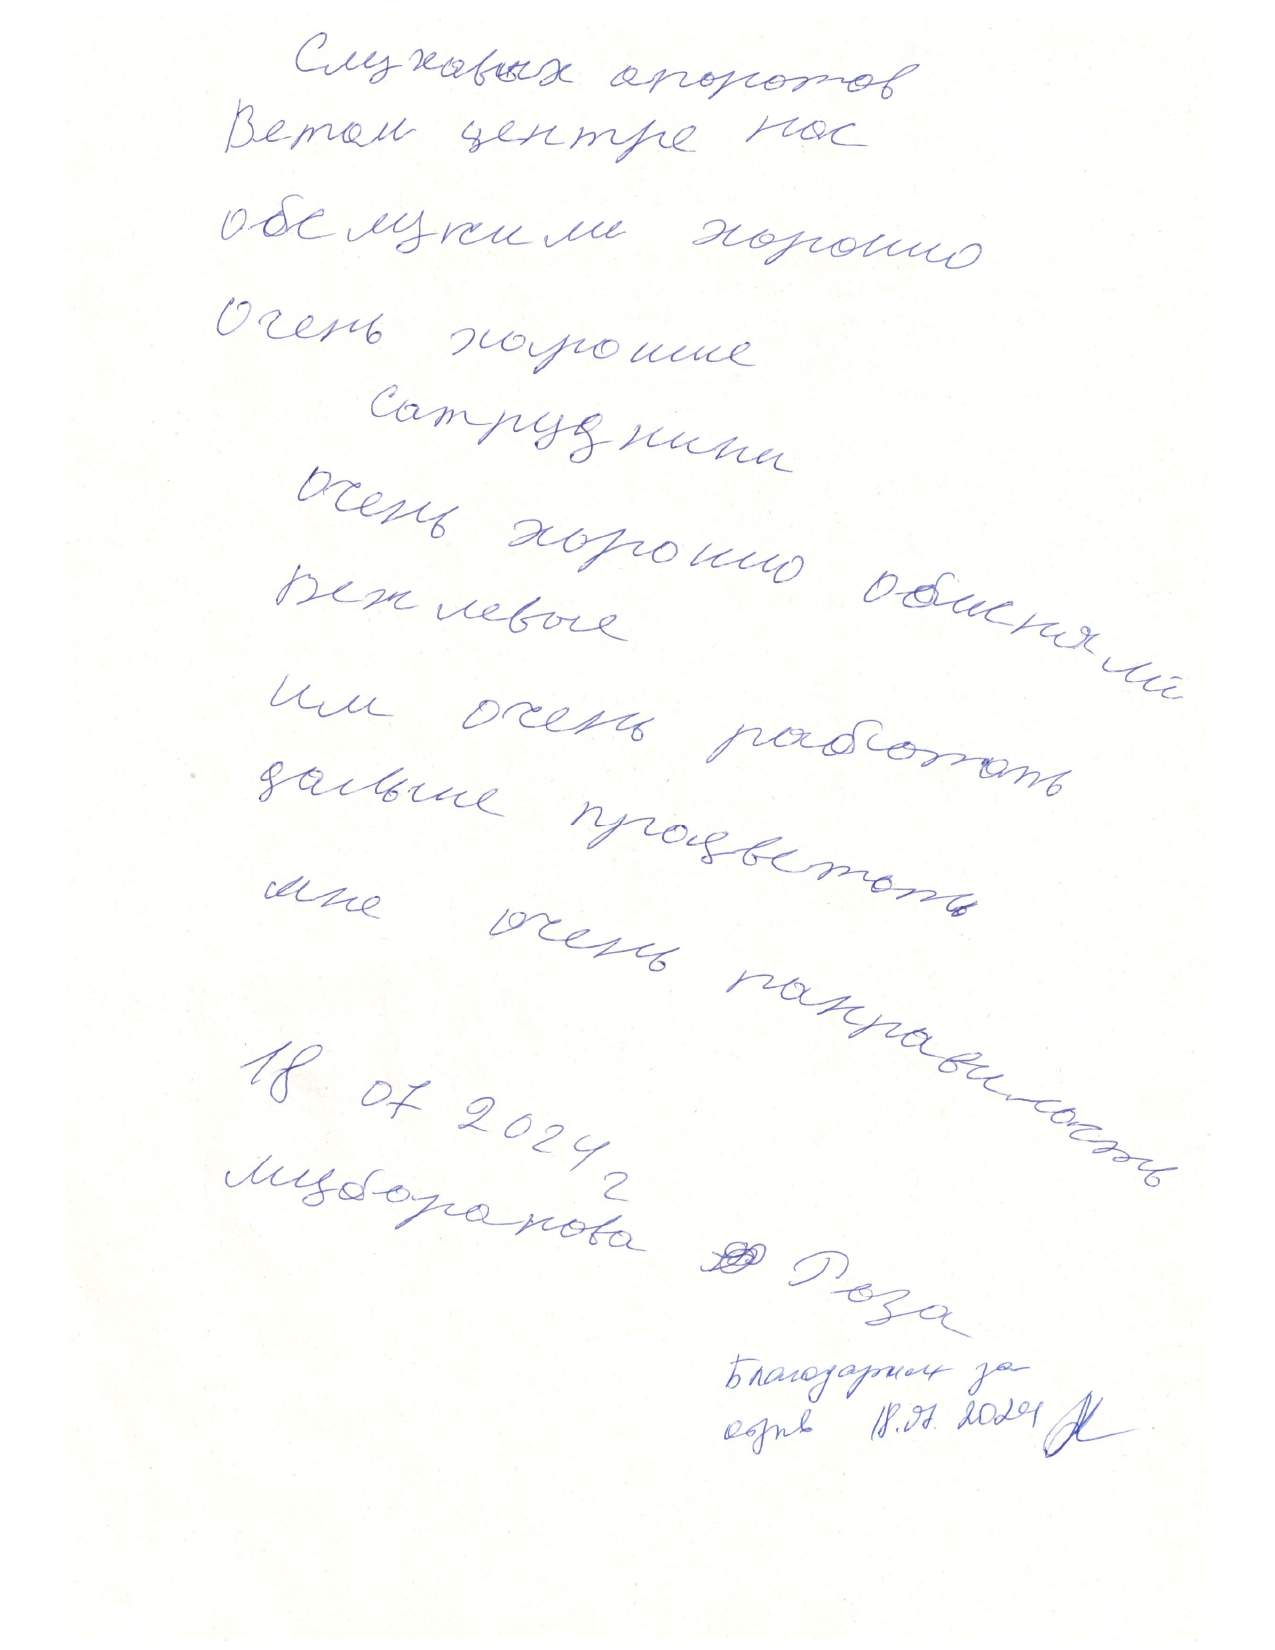 Слуховых апоротов
Ветом центре нас
обслужили хорошо
Очень хорошие
сатрудники
очень хорошо обиснили
вежлевые
им очень работать
дальше процветать
мне очень панравилость
18 07 2024 г
Муборакова Роза
Благодарим за
отзыв 18.07.2024